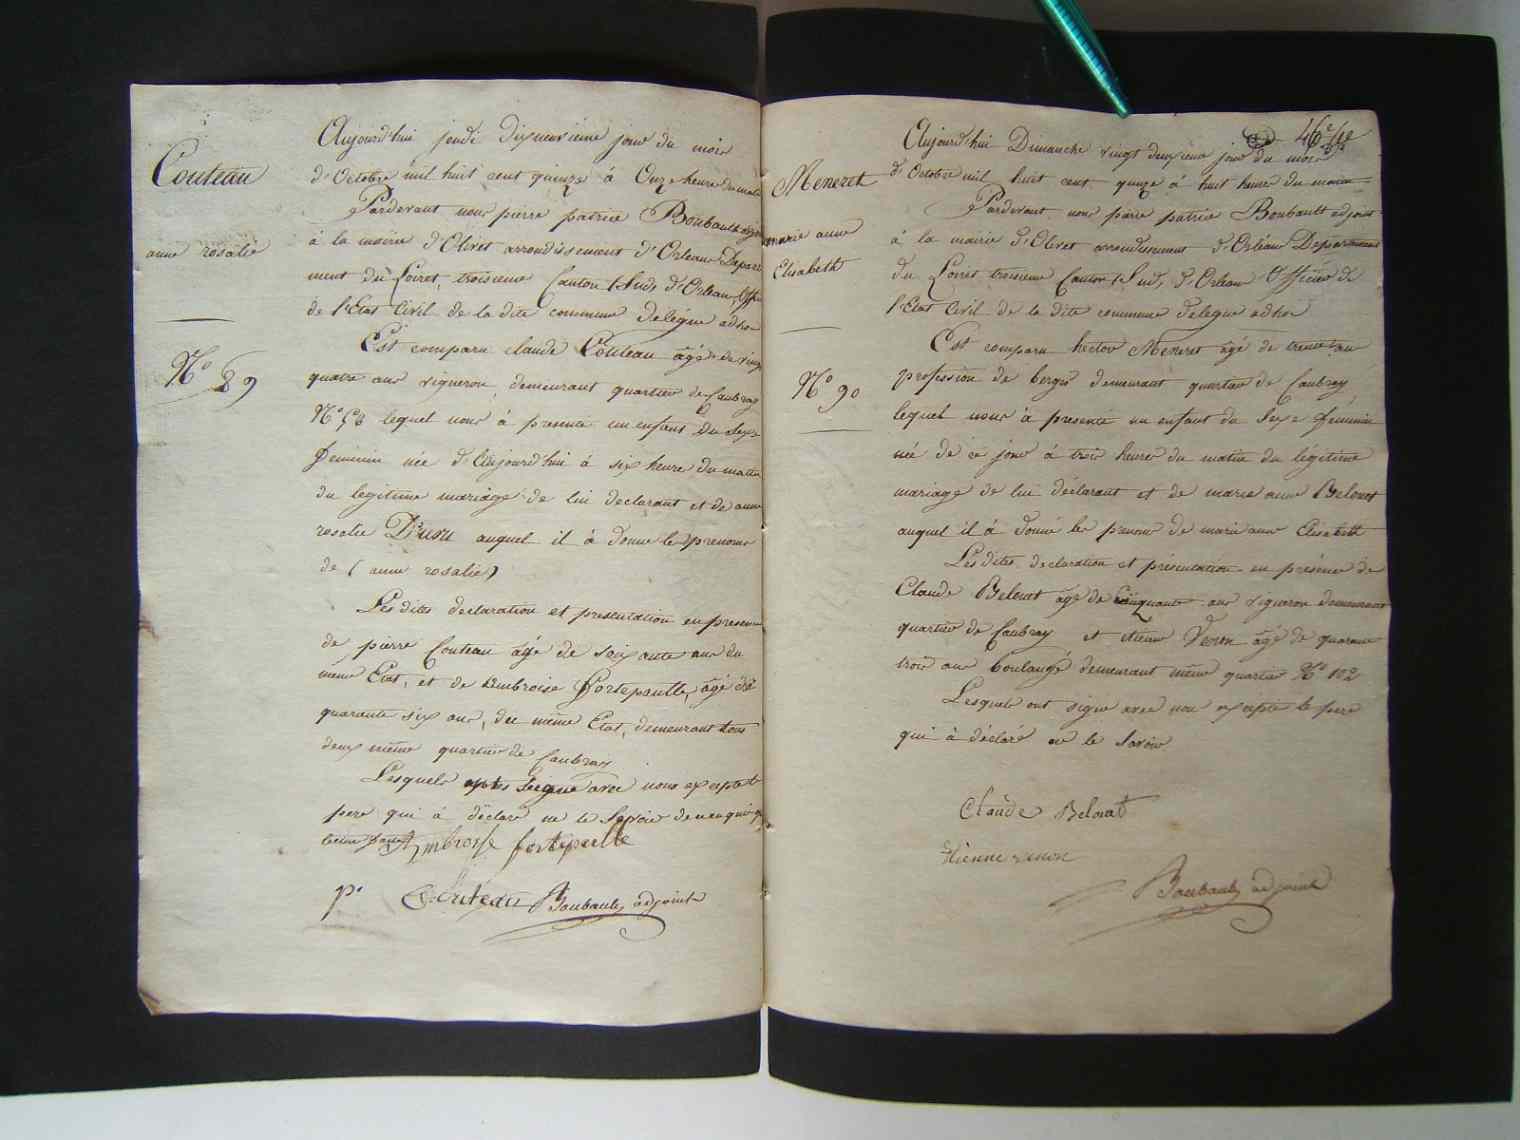 Couteau
anne rosalie
N.o 89
Aujourd'hui jeudi dixneuvieme jour du mois
d'Octobre mil huit cent quinze à Onze heure du matin
Pardevant nous pierre patrice Boubault adjoint
à la mairie d'Olivet arrondissement d'Orleans Departe
ment du Loiret, troisieme Canton (Sud) d'Orleans, Officier
de l'Etat Civil de la dite commune delégué adhoc
Est comparu claude Couteau âgé de vingt
quatre ans vigneron demeurant quartier de Caubray
N.o lequel nous à presenté un enfant du Sexe
feminin née d'Aujourd'hui à six heure du matin
du legitime mariage de lui declarant et de anne
rosalie auquel il à donné le prenoms
de (anne rosalie)
Les dites declaration et presentation en presence
de pierre Couteau âgé de soixante ans du
même Etat, et de Ambroise Fortepaulle, âgé de
quarante six ans, du même Etat, demeurant tous
deux même quartier de Caubray
Lesquels signé avec nous excepté le
pere qui à déclaré ne le Savoir de ce enquis
Ambroise fortepaulle
p. Couteau Boubault adjoint
46.e
Meneret
marie anne
Elisabeth
N.o 90
Aujourd'hui Dimanche vingt deuxieme jour du mois
d'Octobre mil huit cent quinze à huit heure du matin
Pardevant nous pierre patrice Boubault adjoint
à la mairie d'Olivet arrondissement d'Orléans Departement
du Loiret troisieme Canton (Sud) d'Orleans Officier de
l'Etat Civil de la dite commune delegué adhoc
Est comparu hector Meneret âgé de trente ans
profession de berger demeurant quartier de Caubray
lequel nous à presenté un enfant du Sexe feminin
née de ce jour à trois heures du matin du légitime
mariage de lui déclarant et de marie anne Belouet
auquel il à donné les prenoms de marie anne Elisabeth
Les dites declaration et présentation en présence de
Claude Belouet âgé de cinquante ans vigneron demeurant
quartier de Caubray et etienne Venon âgé de quarante
trois ans boulangé demeurant même quartier N.o 102
Lesquels ont signé avec nous excepté le pere
qui à déclaré ne le Savoir
Claude Belouet
Etienne venon
Boubault adjoint